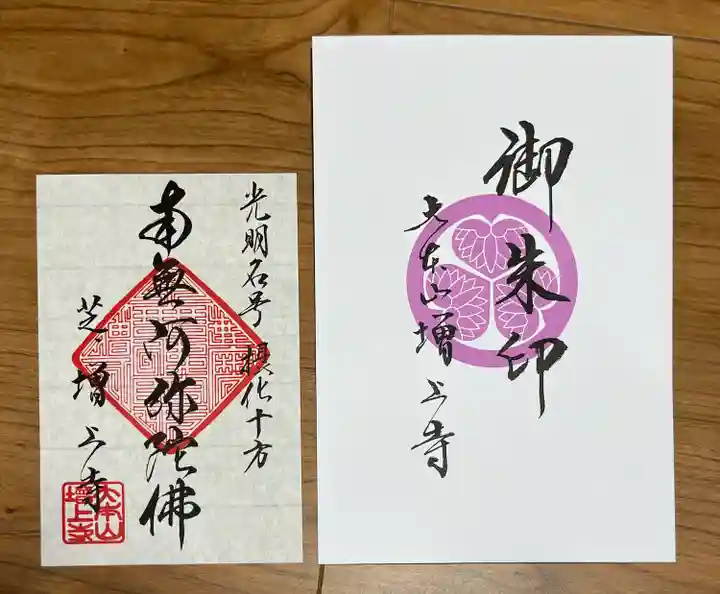 光明名号 摂化十方
南無阿弥陀佛
芝 増上寺
大本山
増上寺
御朱印
大本山増上寺